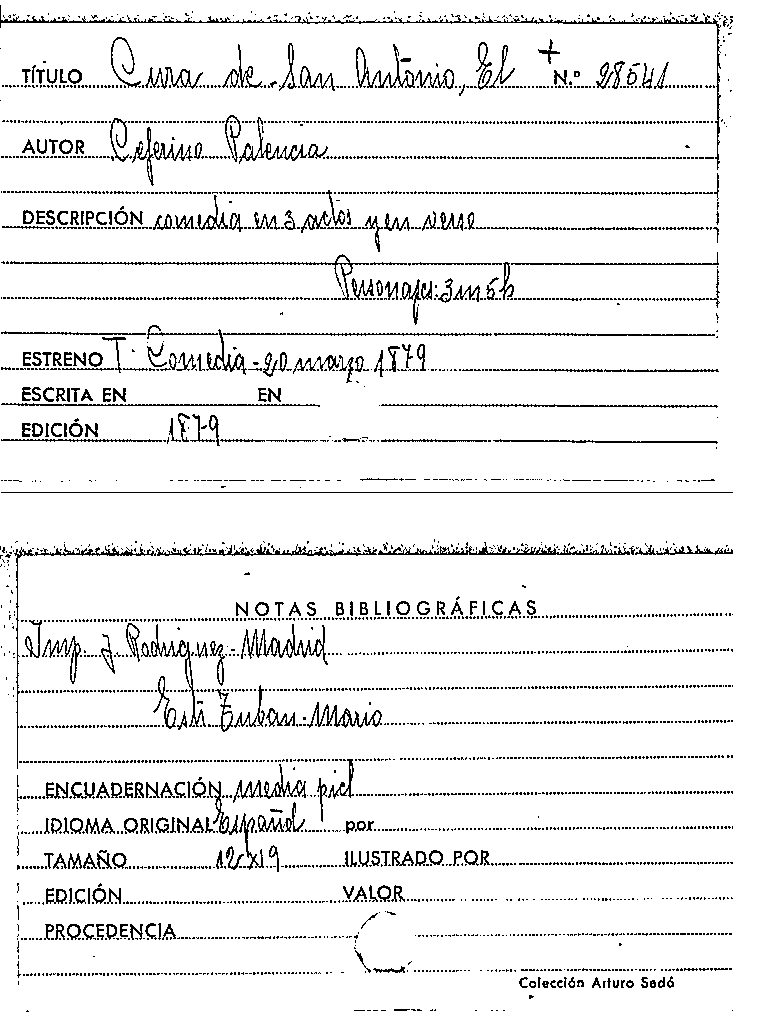 TÍTULO Cura de San Antonio, El + N.º 28541
AUTOR Ceferino Palencia
DESCRIPCIÓN comedia en 3 actos y en verso
Personajes: 3m 5h
ESTRENO T. Comedia - 20 marzo 1879
ESCRITA EN EN
EDICIÓN 1879
NOTAS BIBLIOGRÁFICAS
Imp. J Rodriguez - Madrid
Zuban - Mario
ENCUADERNACIÓN media piel
IDIOMA ORIGINAL Español por
TAMAÑO 12x19 ILUSTRADO POR
EDICIÓN VALOR
PROCEDENCIA
Colección Arturo Sedó